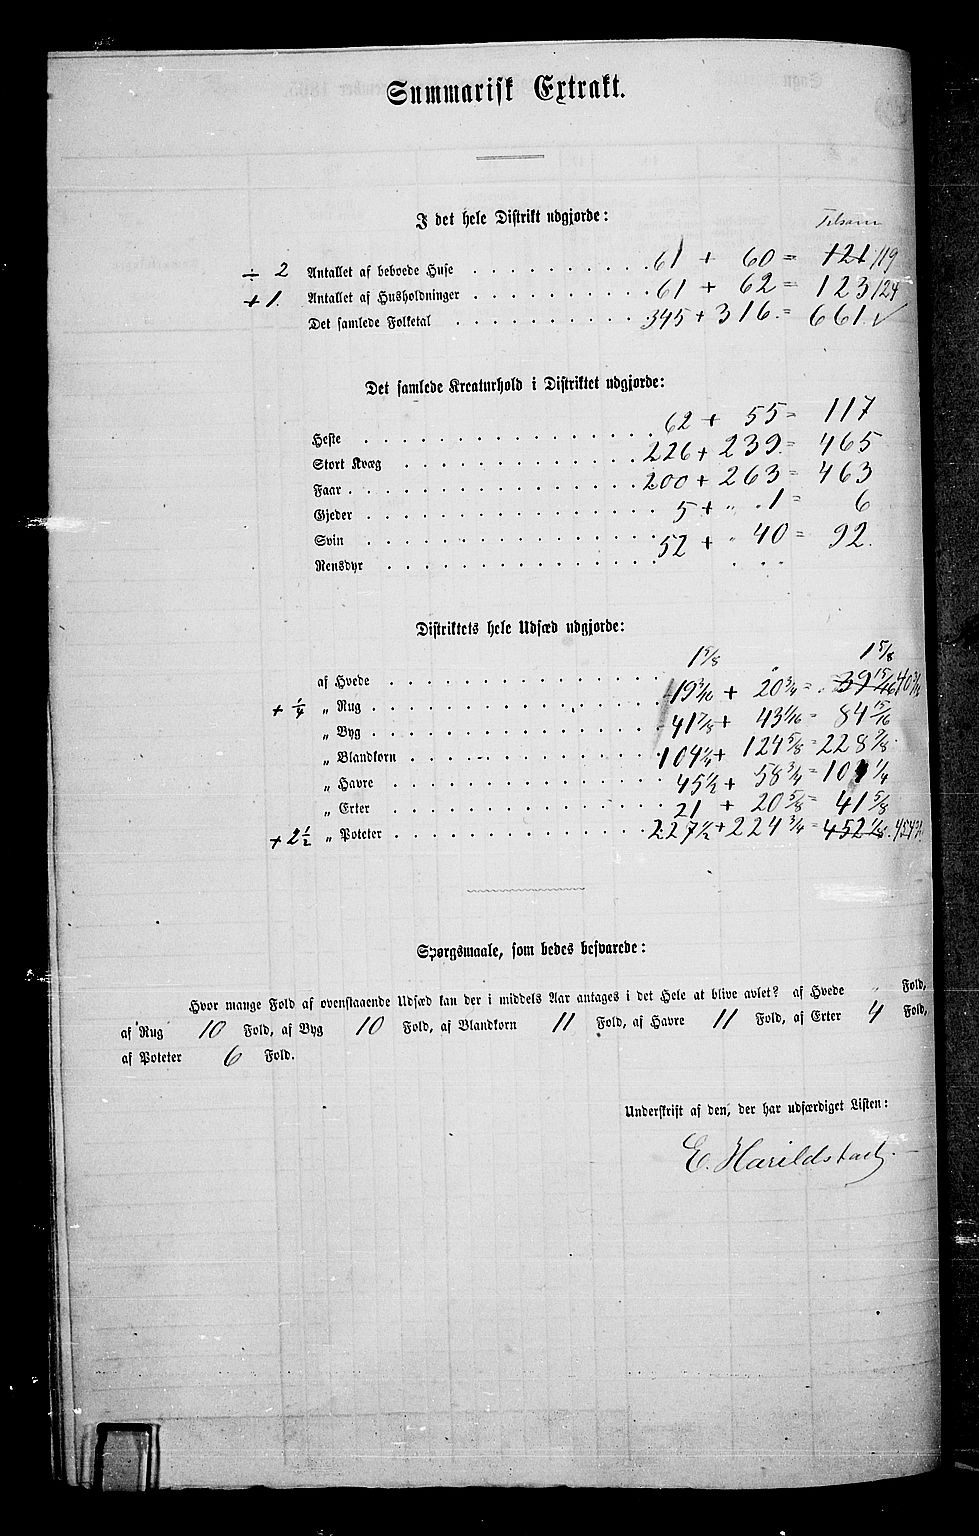 Summarisk Extrakt.
I det hele Distrikt udgjorde:
Tilsam
÷ 2 Antallet af beboede Huse 61 + 60 = 121 119
+ 1. Antallet af Husholdninger 61 + 62 = 123 124
Det samlede Folketal 345 + 316 = 661. ✓
Det samlede Kreaturhold i Distriktet udgjorde:
Heste 62 + 55 = 117
Stort Kvæg 226 + 239 = 465
Faar 200 + 263 = 463
Gjeder 5 + " 1 = 6
Svin 52 + " 40 = 92.
Rensdyr
Distriktets hele Udsæd udgjorde:
af Hvede 1 5/8 1 5/8
+ 1/4 „ Rug 19 3/16 + 20 3/4 = 39 15/16 40 3/16
„ Byg 41 7/8 + 43 1/16 = 84 15/16
„ Blandkorn 104 1/4 + 124 5/8 = 228 7/8
„ Havre 45 1/2 + 58 3/4 = 104 1/4
„ Erter 21 + 20 5/8 = 41 5/8
+ 2 1/2 „ Poteter 227 1/2 + 224 3/4 = 452 1/8. 454 3/4
Spørgsmaale, som bedes besvarede:
Hvor mange Fold af ovenstaaende Udsæd kan der i middels Aar antages i det Hele at blive avlet? af Hvede " Fold,
af Rug 10 Fold, af Byg 10 Fold, af Blandkorn 11 Fold, af Havre 11 Fold, af Erter 4 Fold,
af Poteter 6 Fold.
Underskrift af den, der har udfærdiget Listen:
E. Harildstad.